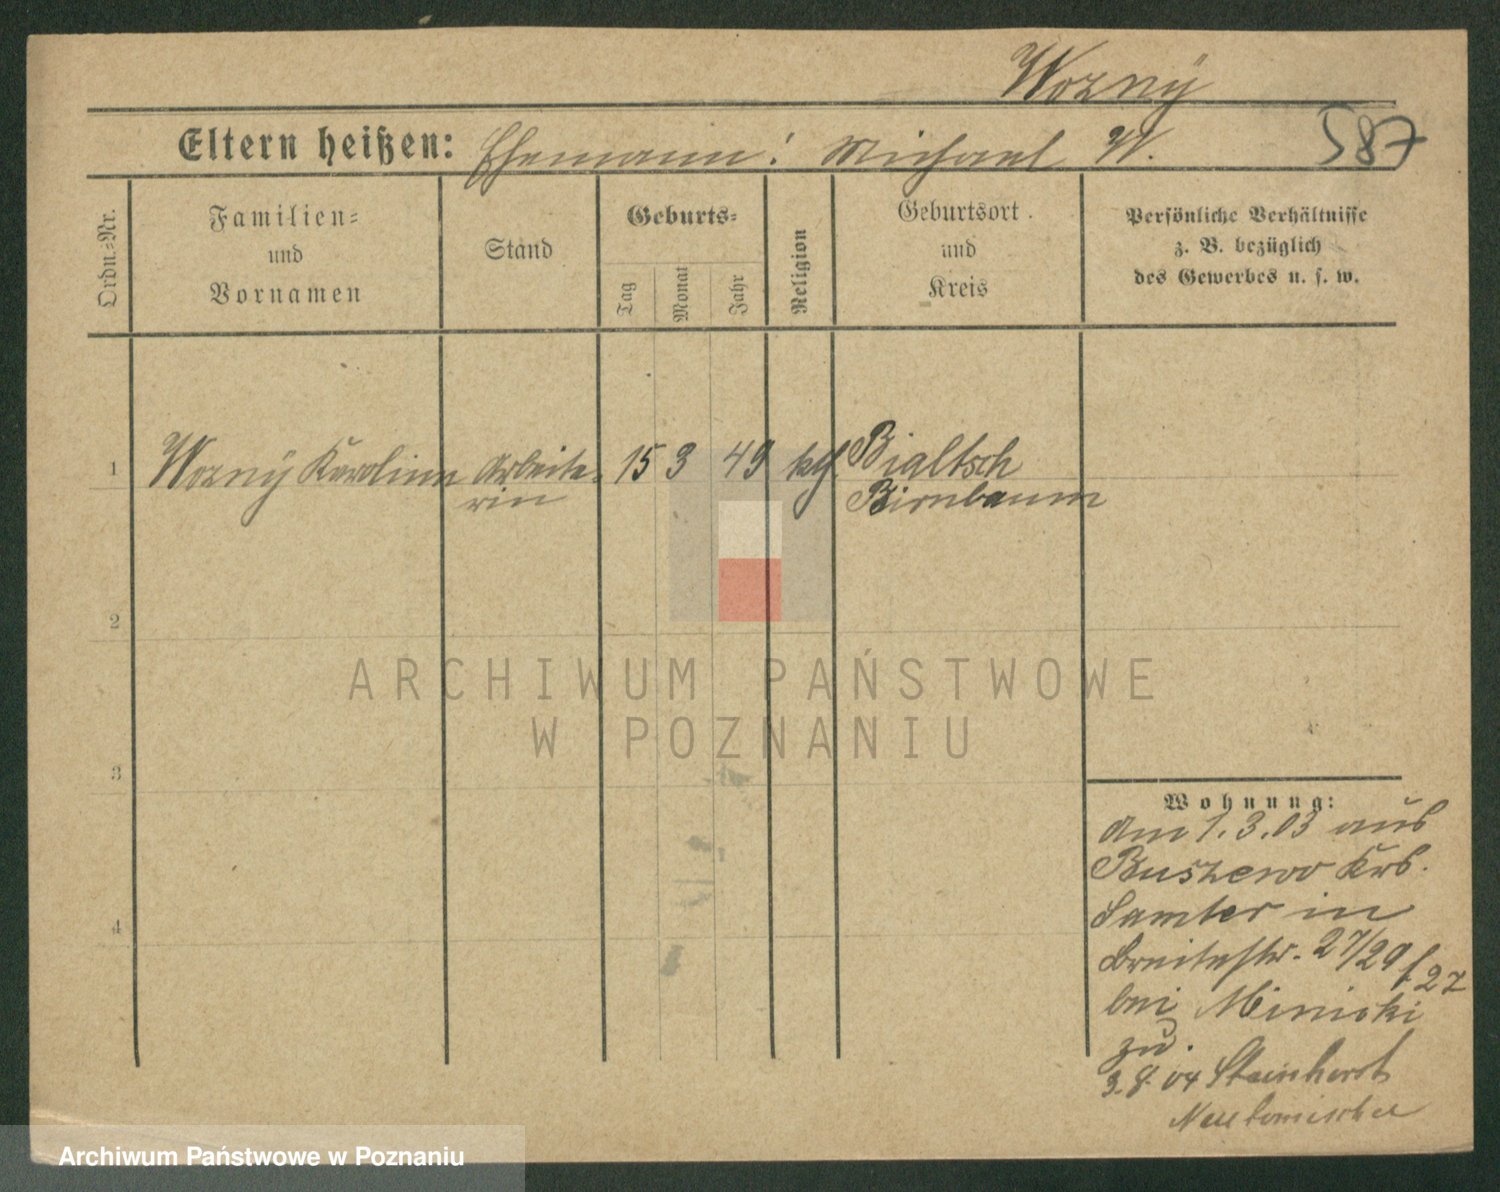 Wozny
Eltern heißen: Ehemann: Michael W. 587
Ordn.=Nr.
Familien=
und
Vornamen
Stand
Geburts=
Tag
Monat
Jahr
Religion
Geburtsort
und
Kreis
Persönliche Verhältnisse
z. B. bezüglich
des Gewerbes u. s. w.
1 Wozny Karolina Arbeite= 15 3 49 kth. Bialtsch
rin Birnbaum
2
ARCHIWUM PAŃSTWOWE
W POZNANIU
3
4
Wohnung:
Am 1.3.03 aus
Buszewo Krs.
Samter in
Breitestr. 27/29 f 27
bei Minicki
zu.
3.8.04 Steinhorst
Neutomischel
Archiwum Państwowe w Poznaniu